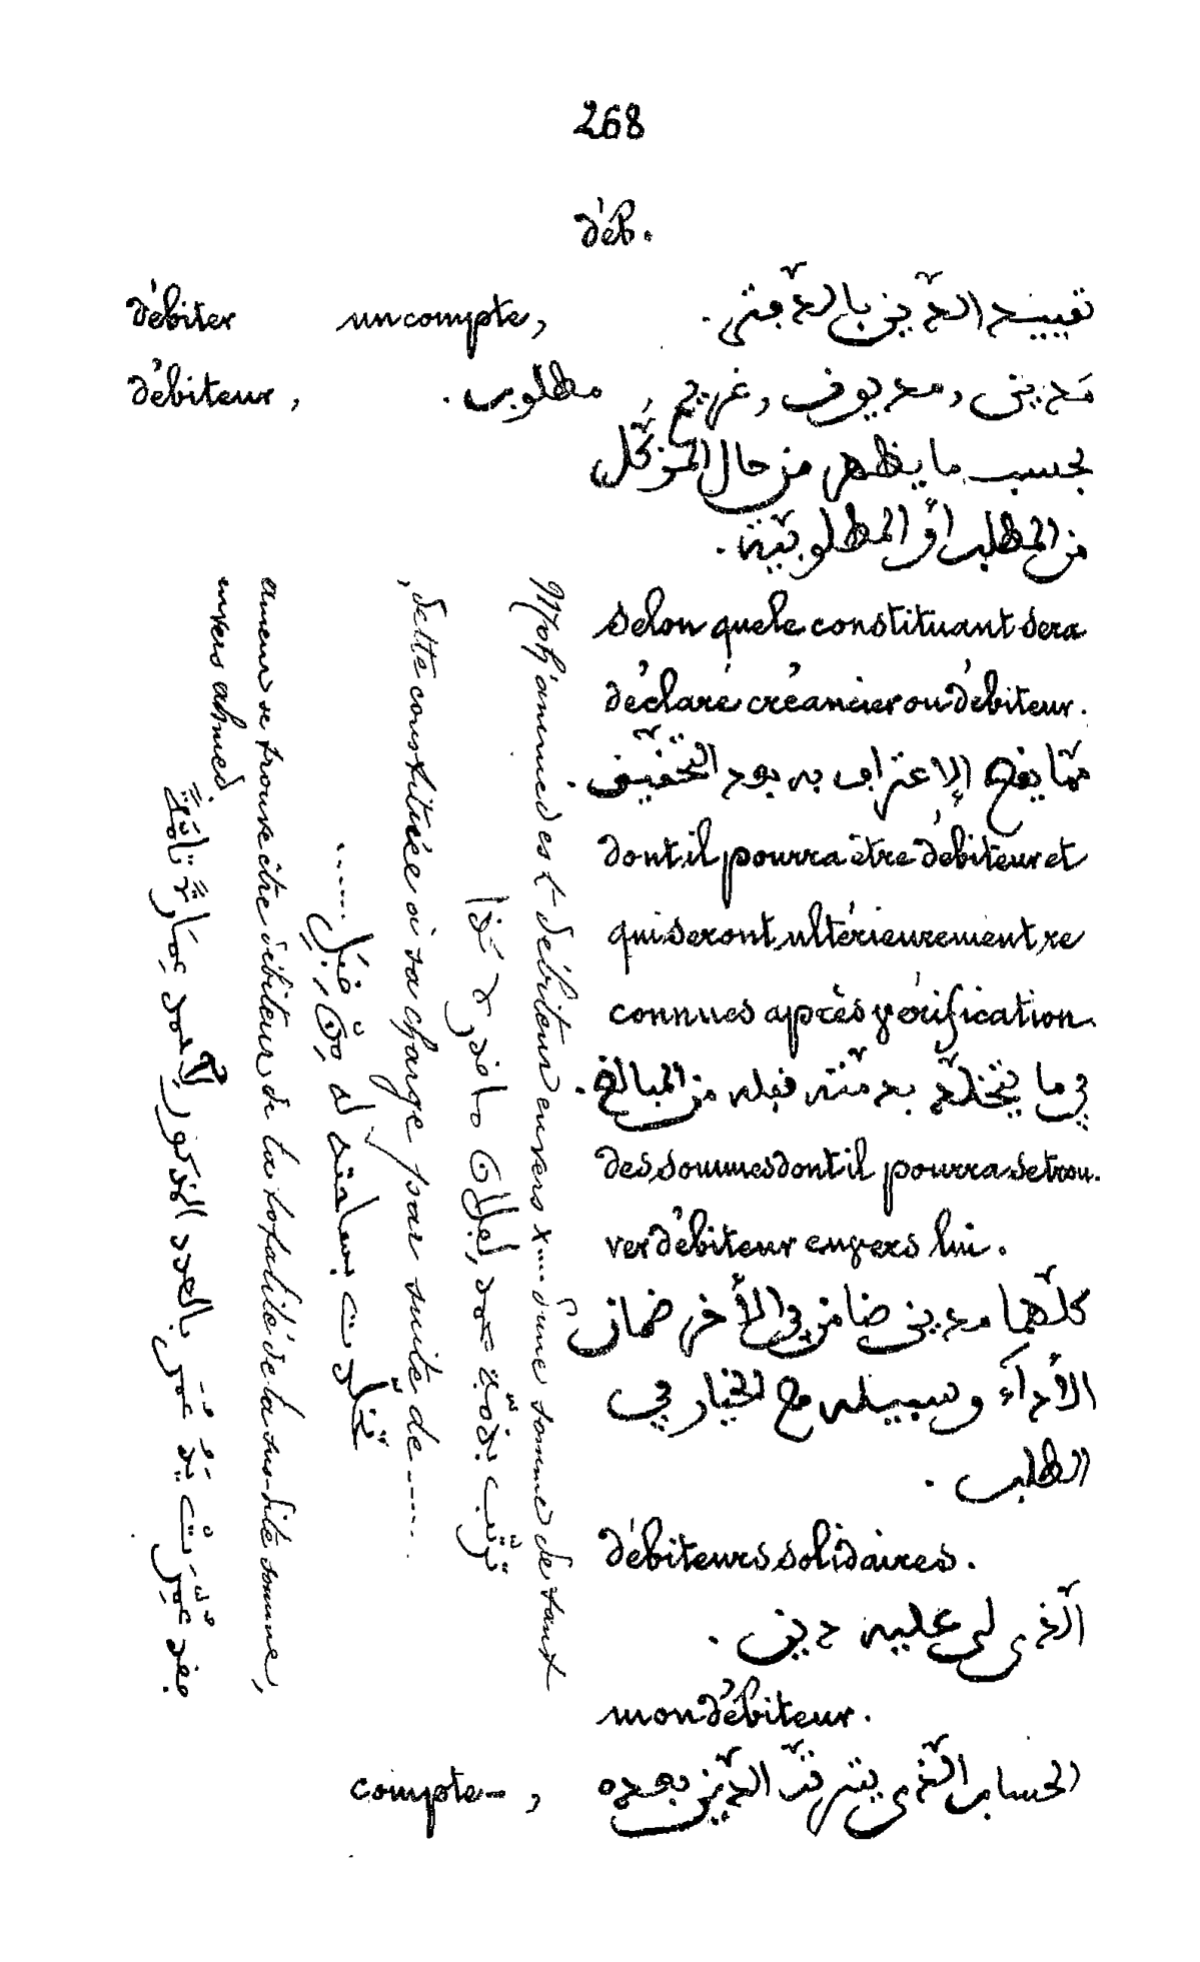 268
déb.
débiter un compte, تقييد الدّين بالدّفتر.
débiteur, مَدين, مديون, غريم, مطلوب.
بحسب ما يظهر من حال المُوَكّل
من المطلب أو المطلوبيّة.
selon que le constituant sera
déclaré créancier ou débiteur.
ممّا يقع الاعتراف به بعد التّحقيق.
dont il pourra être débiteur et
qui seront, ultérieurement, re
connues après vérification.
في ما يتخلّد بذمّته قبله من المبالغ.
des sommes dont il pourra se trou-
ver débiteur envers lui.
كلّهما مدين ضامن في الأخر ضمان
الأداء وسبيله مع الخيار في
الطلب.
débiteurs solidaires.
الّذي لي عليه دين.
mon débiteur.
compte-, الحساب الّذي يترتّب الدّين بعده
Moh'ammed est débiteur envers X.... d'une somme de tant
ترتّب بذمّة محمد لفلان ما قدره كذا
, dette constituée à sa charge par suite de ......
تخلّدت بساحته له من قبل ......
ameur se trouve être débiteur de la totalité de la sus-dite somme,
envers ahmed.
بالعدد المذكور لأحمد عمارة ثابتة